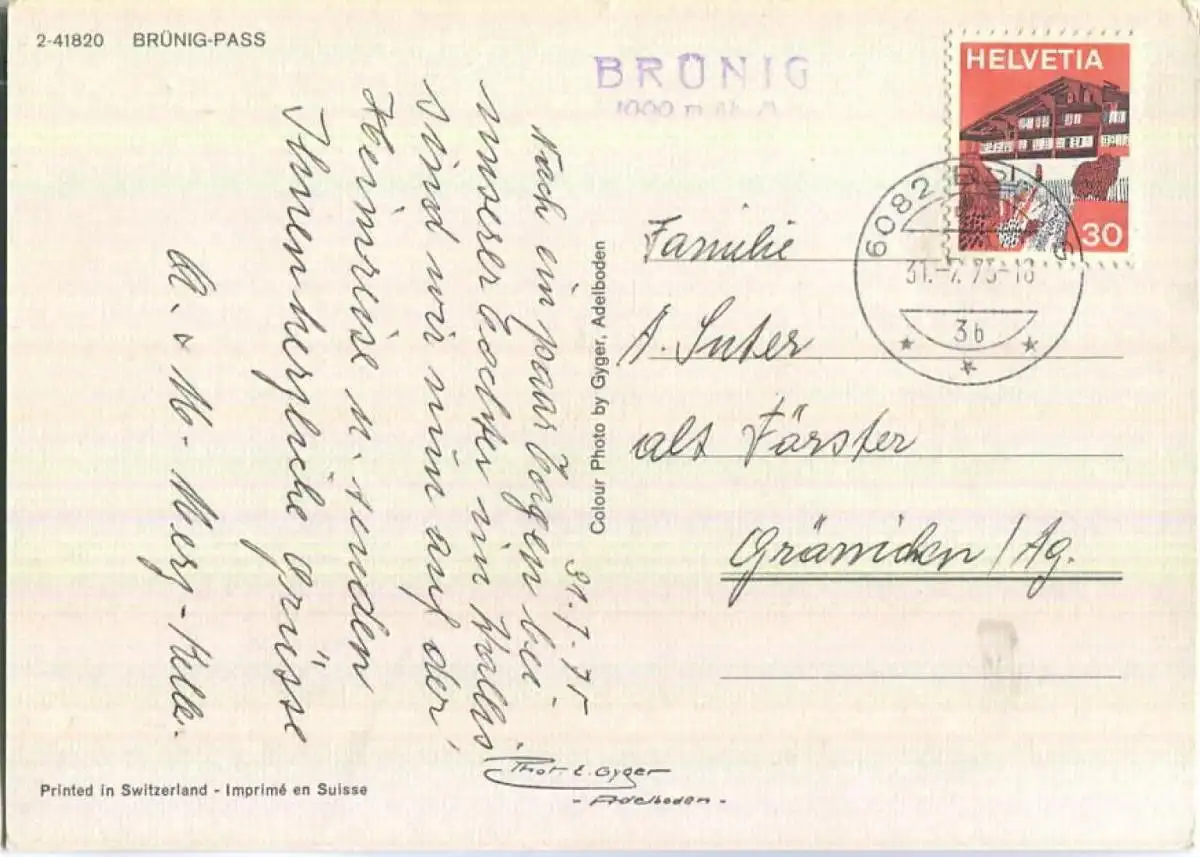 2-41820 BRÜNIG-PASS
BRÜNIG
1000 m
HELVETIA
30
6082
31.-7.75-18
3b
31.7.75
Nach ein paar Tagen bei
unserer Tochter in
sind wir nun auf der
Heimreise u. senden
Ihnen herzliche Grüsse
M.
Familie
A. Suter
alt Förster
Gränichen/Ag.
Colour Photo by Gyger, Adelboden
Phot. E. Gyger
- Adelboden -
Printed in Switzerland - Imprimé en Suisse